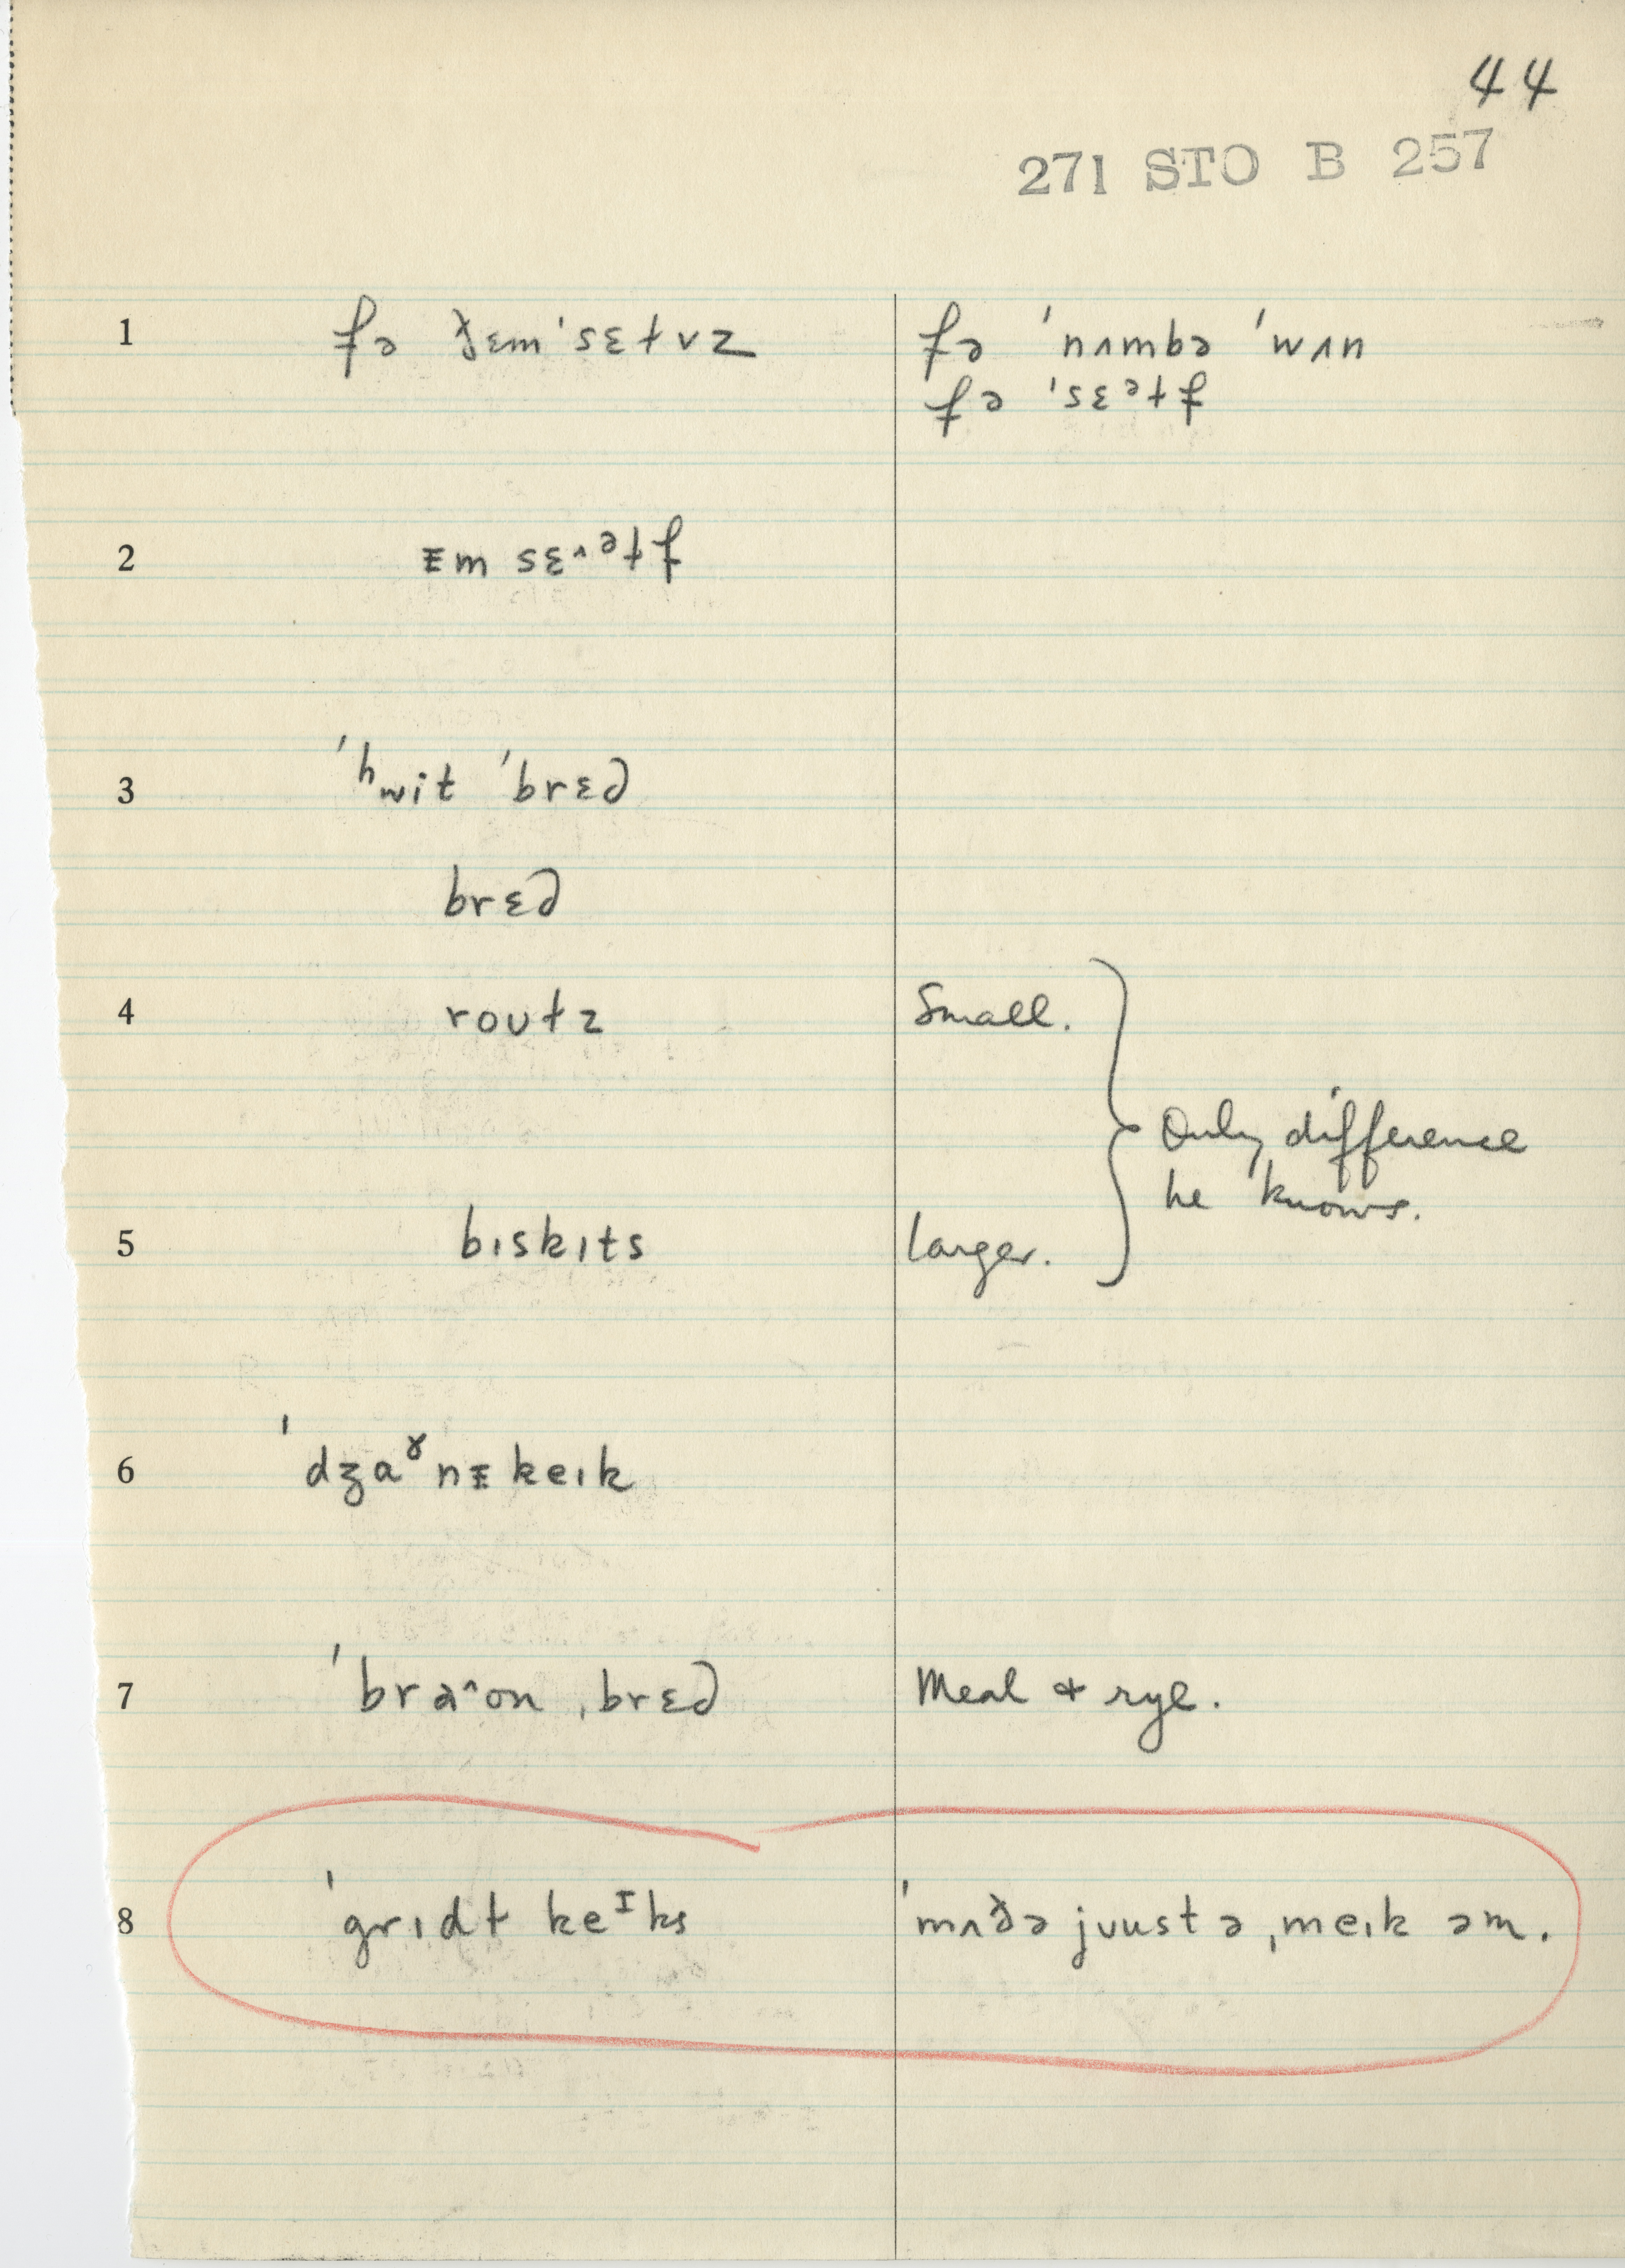 44
271 STO B 257
1 fə ðɛm'sɛɫvz fə 'nʌmbə 'wʌn
fə 'sɛᵊɫf
2 ᵻm sɛ˄ᵊɫf
3 'hwit 'brɛd
brɛd
4 roʊɫz Small.
Only difference
he knows.
5 bɪskɪts larger.
6 'dʒaɤnᵻkeɪk
7 'bra˄on ˌbrɛd Meal + rye.
8 'grɪdɫ keᶦks 'mʌðə jʊustə ˌmeɪk əm.